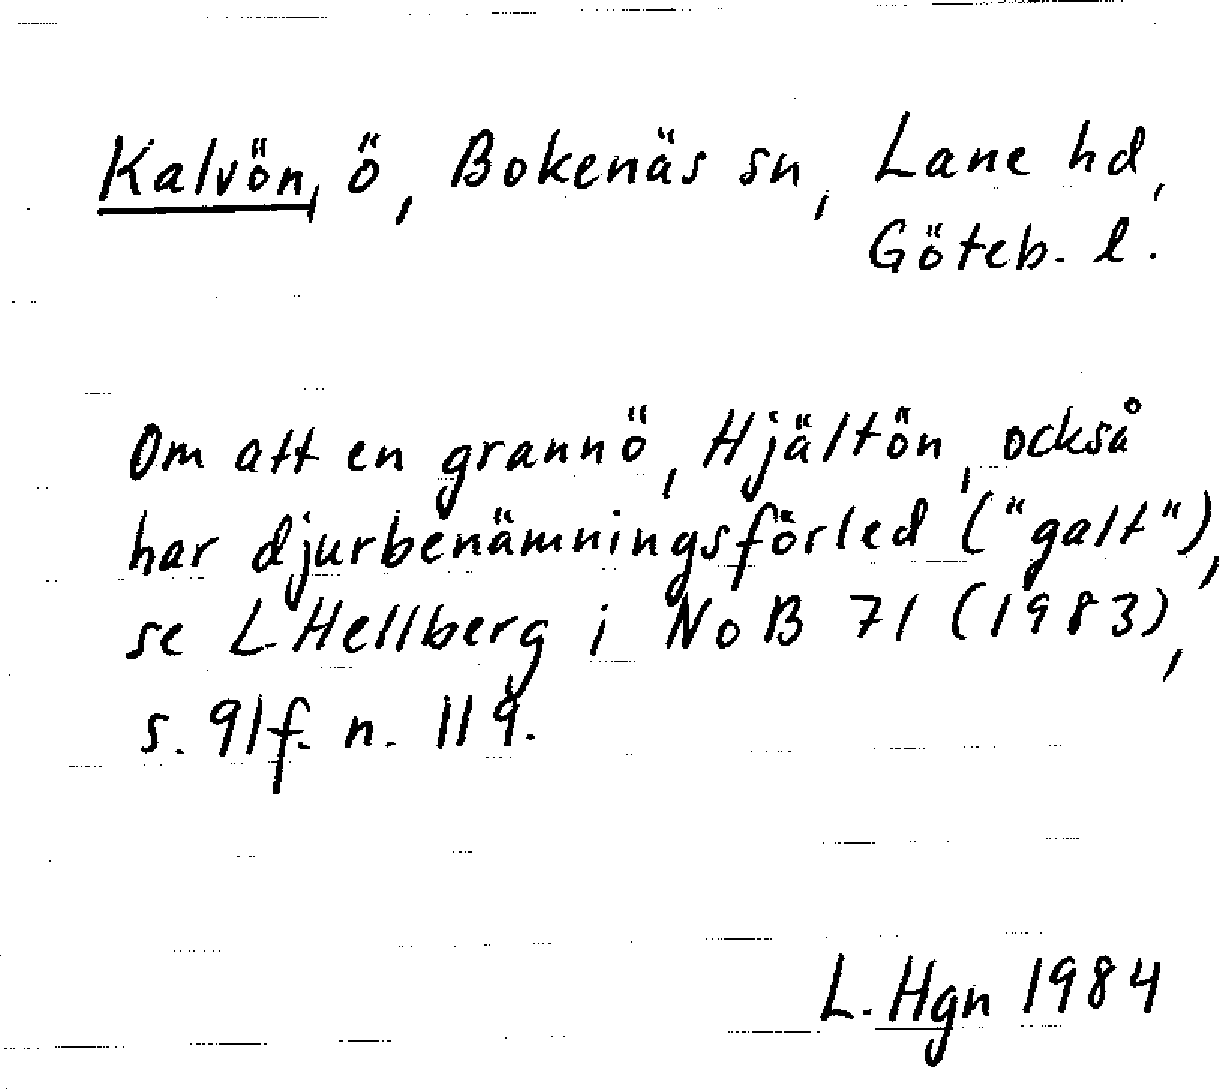 Kalvön, ö, Bokenäs sn, Lane hd,
Göteb. l.
Om att en grannö, Hjältön, också
har djurbenämningsförled ("galt"),
se L Hellberg i NoB 71 (1983),
s. 91f. n. 119.
L. Hgn 1984